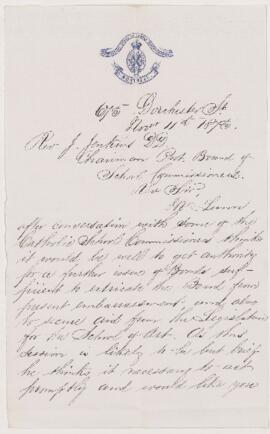 675 Dorchester St.
Novr 11th
Rev J. Jenkins DD
Chairman Prot. Board of
School Commissioners
Rev Sir,
Mr Lunn
after conversation with some of the
Catholic School Commissioners thinks
it would be well to get authority
for a further issue of Bonds suf-
ficient to extricate the Board from
present embarrassment, and also
to secure aid from the Legislature
for the School of Art. As this
Session is likely to be but brief
he thinks it necessary to act
promptly and would like you